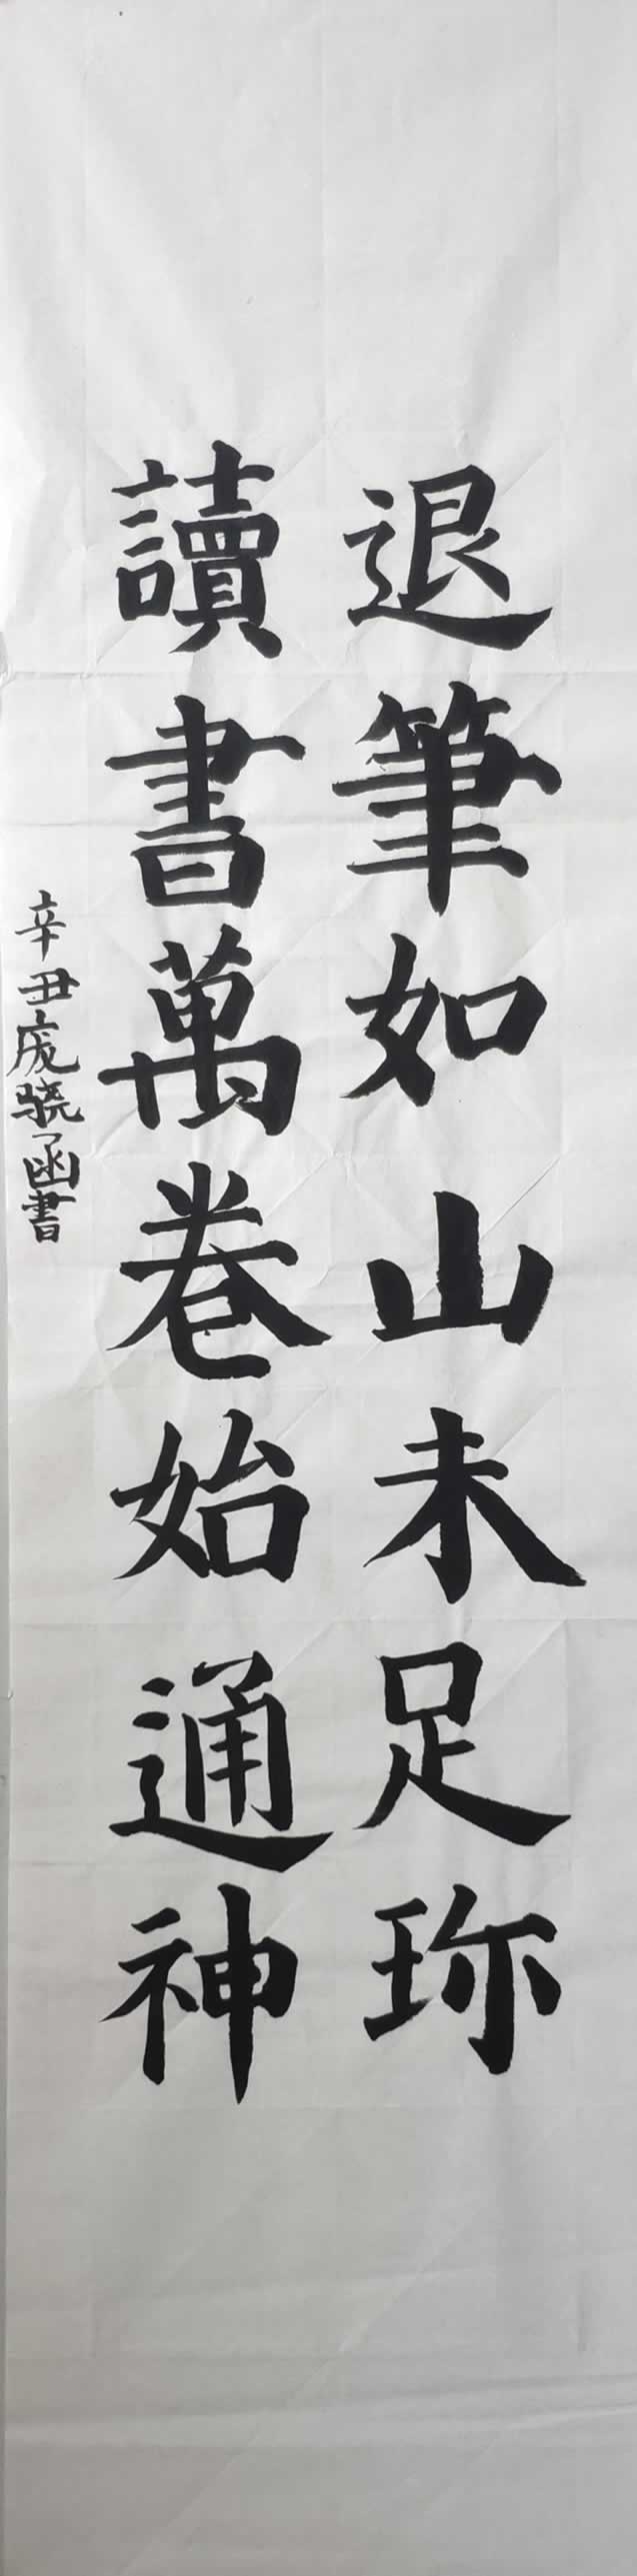 退筆如山未足珎
讀書萬卷始通神
辛丑庞骁函書